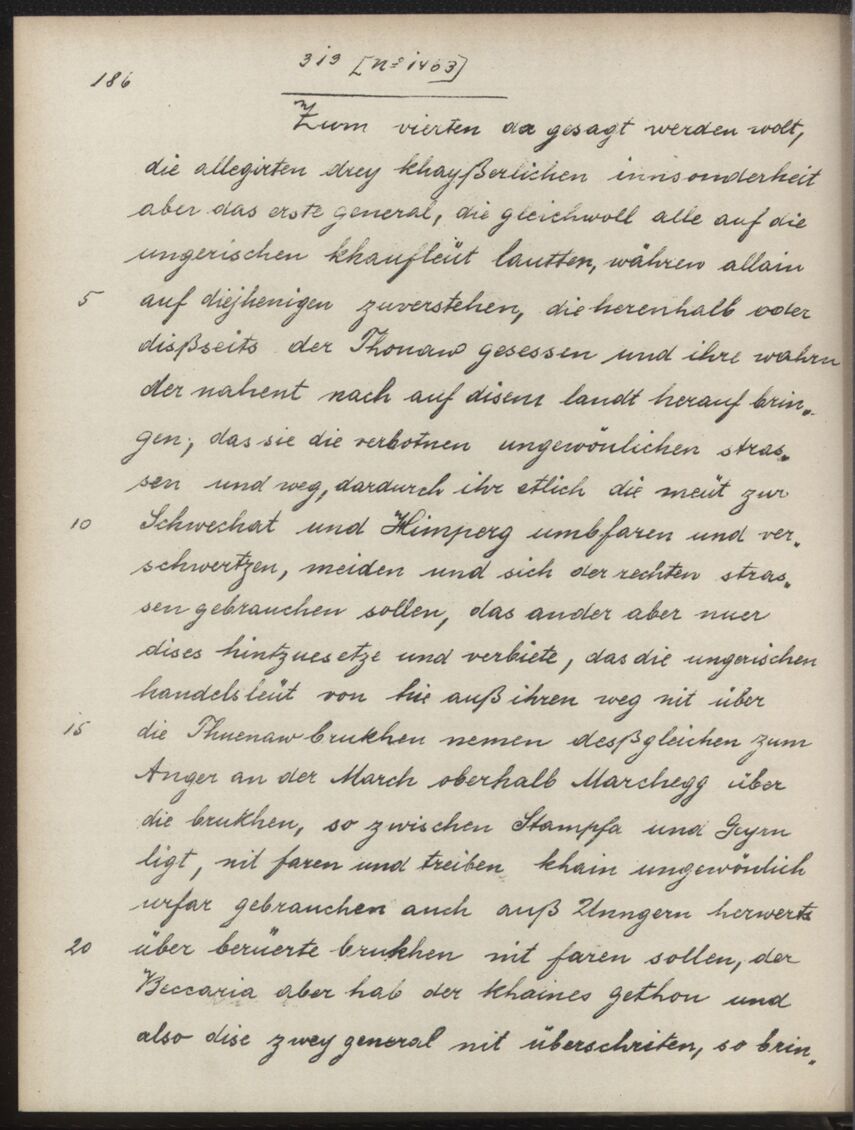 186
319 [nº 1463]
Zum vierten da gesagt werden wolt,
die allegirten drey khayßerlichen innsonderheit
aber das erste general, die gleichwoll alle auf die
ungerischen khaufleüt lautten, währen allain
5 auf diejhenigen zuverstehen, die herenhalb oder
dißseits der Thonaw gesessen und ihre wahrn
der nahent nach auf disem landt herauf brin„
gen, das sie die verbotnen ungewönlichen stras„
sen und weg, dardurch ihr etlich die meüt zur
10 Schwechat und Himperg umbfaren und ver„
schwertzen, meiden und sich der rechten stras„
sen gebrauchen sollen, das ander aber nuer
dises hintzuesetze und verbiete, das die ungerischen
handelsleüt von hie auß ihren weg nit über
15 die Thuenaw brukhen nemen desßgleichen zum
Anger an der March oberhalb Marchegg über
die brukhen, so zwischen Stampfa und Gyrn
ligt, nit faren und treiben khain ungewönlich
urfar gebrauchen auch auß Unngern herwerts
20 über berüerte brukhen nit faren sollen, der
Beccaria aber hab der khaines gethon und
also dise zwey general nit überschriten, so brin„